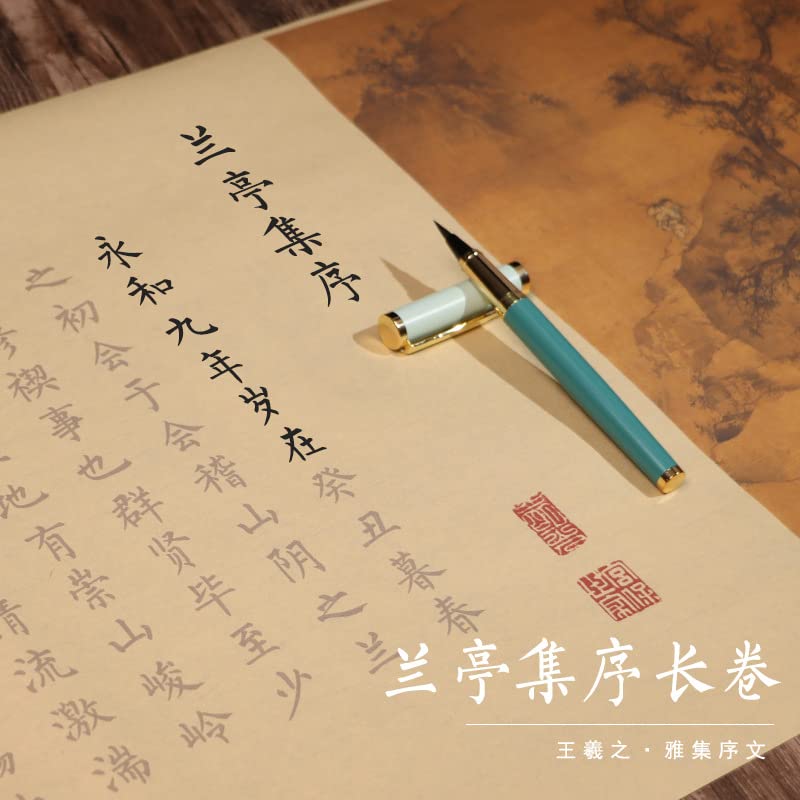 兰亭集序
永和九年岁在癸丑暮春
之初会于会稽山阴之兰
修禊事也群贤毕至少
地有崇山峻岭
清流激湍
兰亭集序长卷
王羲之·雅集序文